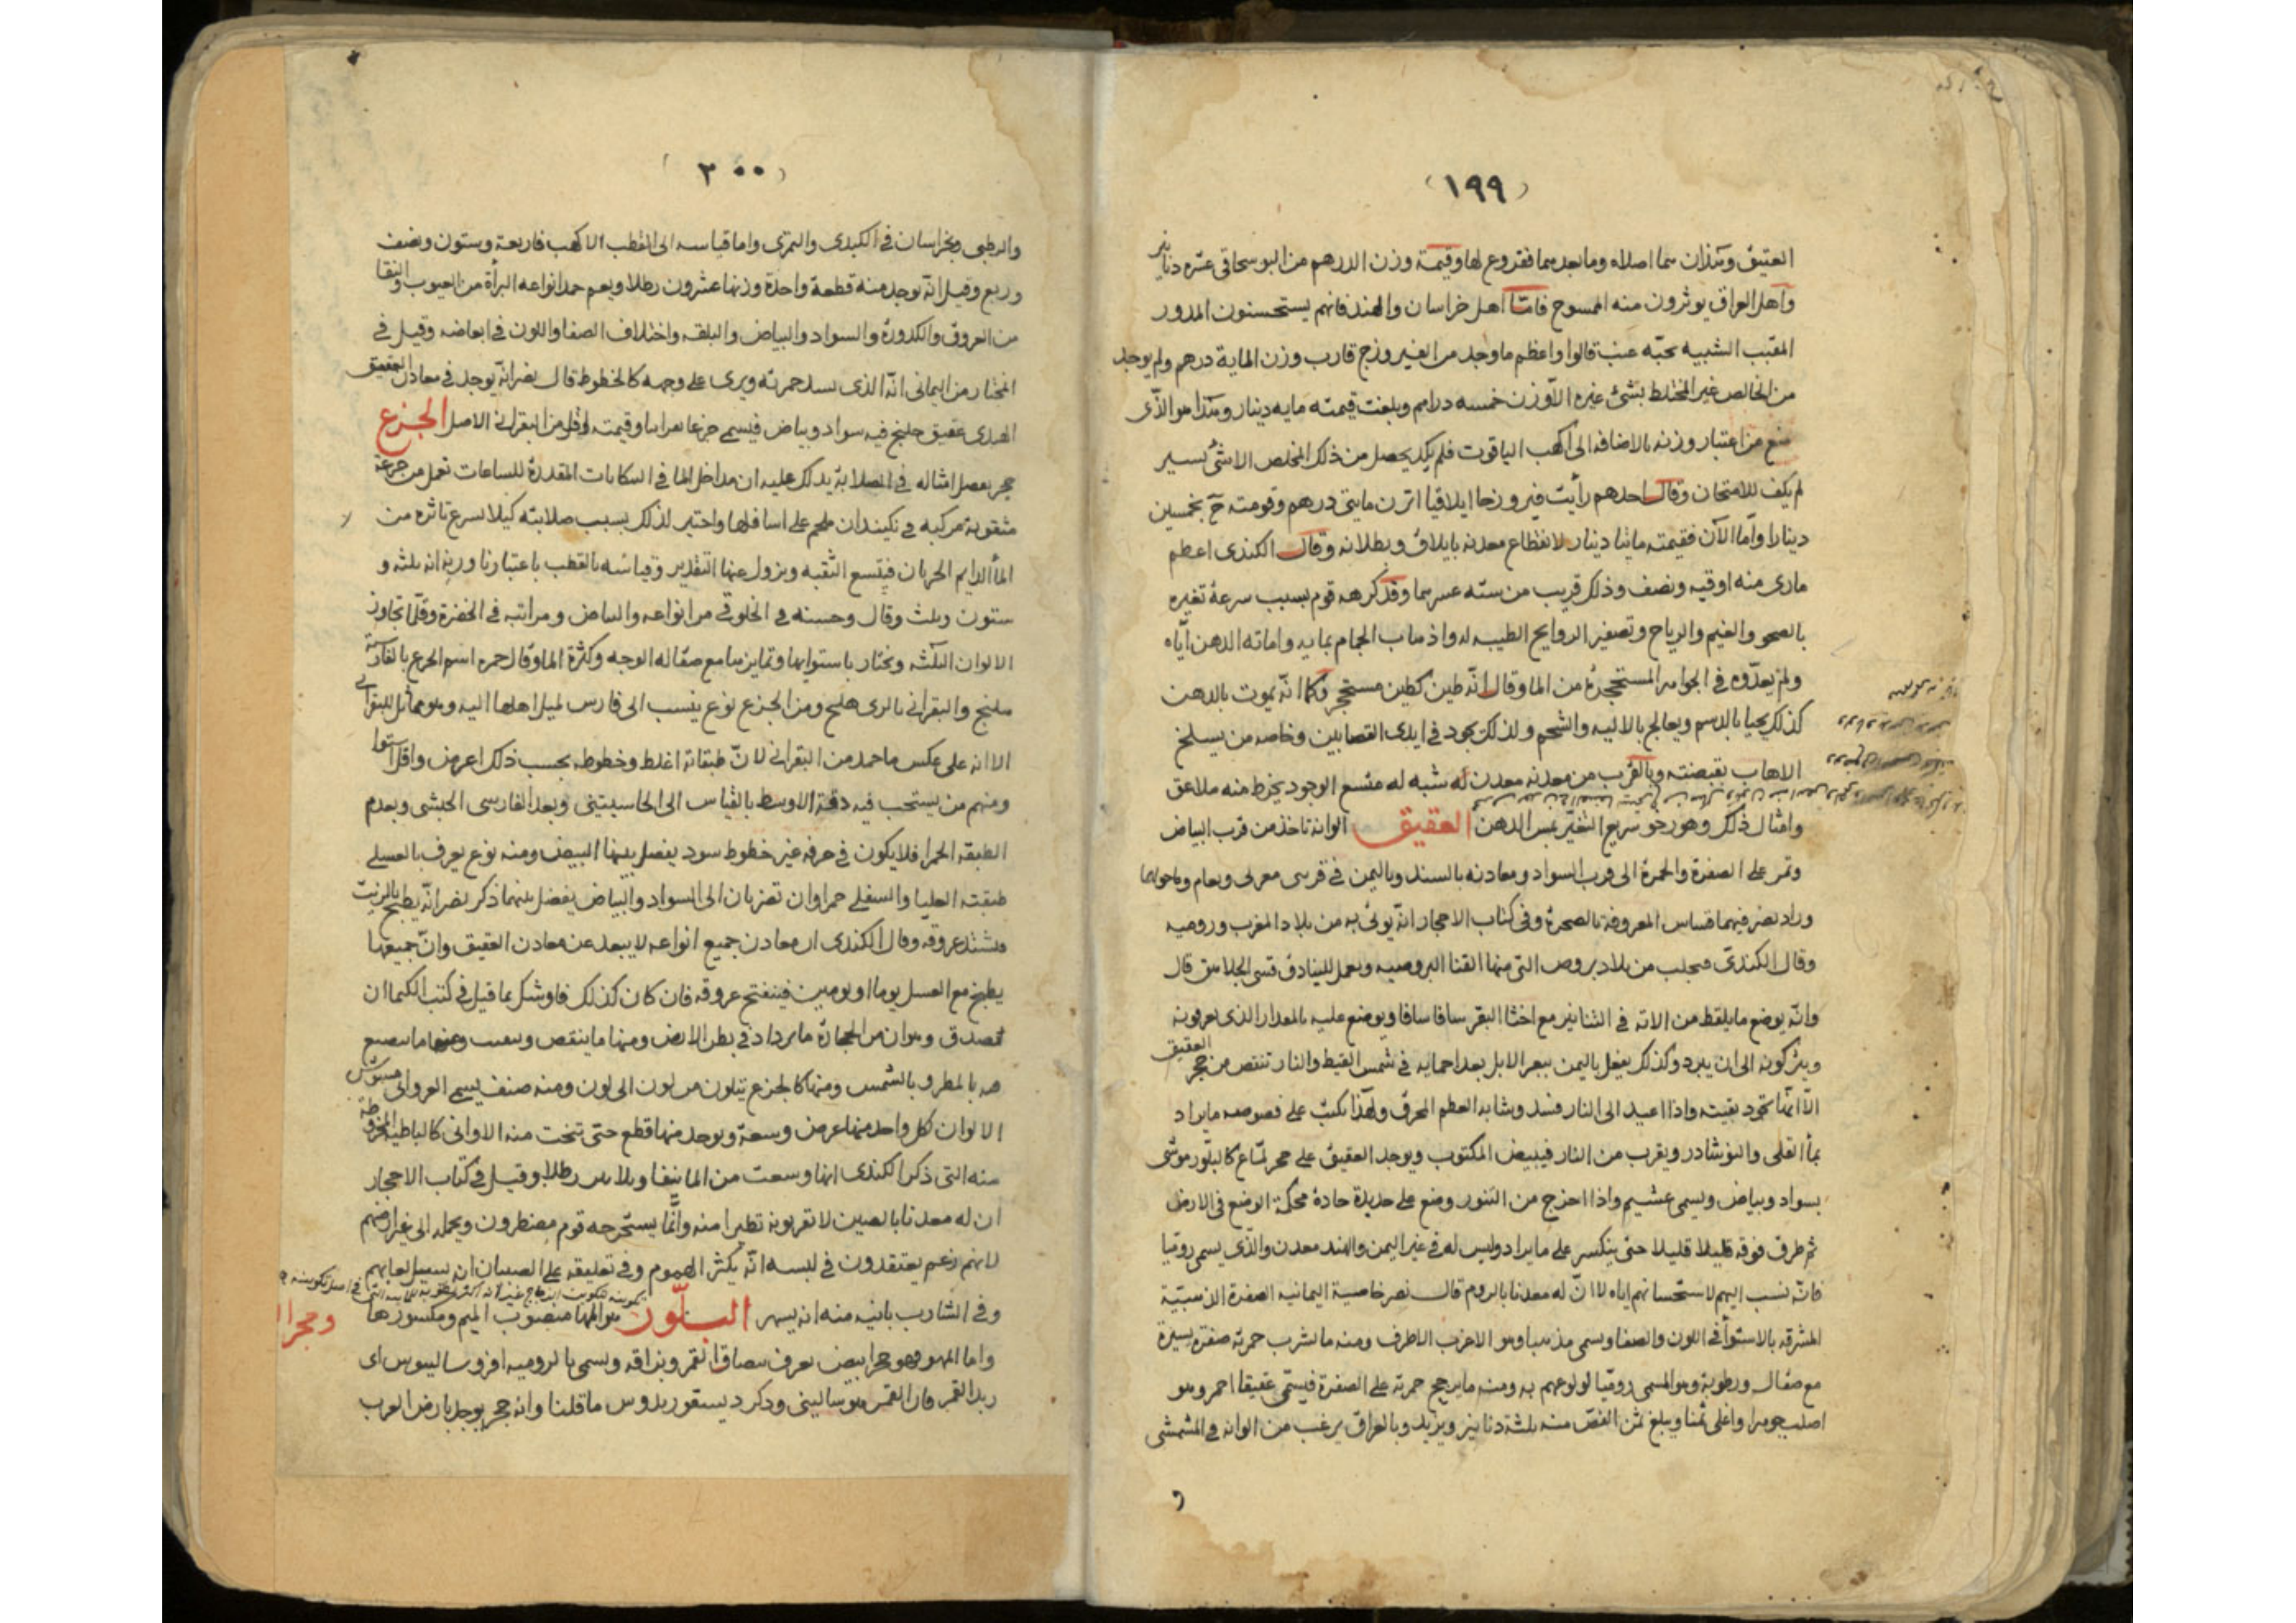 (١٩٩)
العتيق وهذان هما اصلاه وما بعدهما ففروع لها وقيمة وزن الدرهم من البوسحاقى عشره دنانير
وأهل العراق يوثرون منه الممسوح فامّا اهل خراسان والهند فانهم يستحسنون المدور
المقبب الشبيه بحبّه عنب قالوا واعظم ما وجد من الفيروزج قارب وزن الماية درهم ولم يوجد
من الخالص غير المختلط بشئ غيره الّا وزن خمسه دراهم وبلغت قيمته مايه دينار وهذا هو الذّى
منع من اعتبار وزنه بالاضافه الى اكهب الياقوت فلم يكد يحصل من ذلك المخلص الا شئ يسير
لم يكف للامتحان وقال احدهم رأيت فيروزجا ايلاقيا اتزن مايتى درهم وقومته بخمسين
دينارا وامّا الآن فقيمته مائتا دينار لانقطاع معدنه بايلاق وبطلانه وقال الكندى اعظم
ماراى منه اوقيه ونصف وذلك قريب من سته عسر وقد كرهه قوم بسبب سرعة تغيره
بالصحو والغيم والرياح وتصفير الروايح الطيبه له واذهاب الحمام بمايه واماته الدهن ايّاه
ولم يعدّوه فى الجواهر المستحجرة من الما وقال انّه طين كطين مستحجر وكما انّه يموت بالدهن
كذلك يحيا بالدسم ويعالج بالاليه والشحم ولذلك يجود فى ايدى القصابين وخاصه من يسلخ
الاهاب بقبضته وبالقرب من معدنه معدن له شبه له متسع الوجود يخرط منه ملاعق
وامثال ذلك وهو رخو سريع التغيّر بمس الدهن العقيق الوانه تاخذ من قرب البياض
وتمر على الصفرة والحمرة الى قرب السواد ومعادنه بالسند وباليمن فى قرىى وما حولها
وزاد نصر فيهما المعروفة بالصحرة وفى كتاب الاحجار انّه يوتى به من بلاد المغرب وروميه
وقال الكندىّ يجلب من بلاد بروص التى منها القنا البروصيه ويعمل للبنادق قسى الجلاهق قال
وانّه يوضع ما يلقط من الاته فى التنانير مع اخثا البقر سافا سافا ويوضع عليه بالمعدار الذى يعرفونه
ويتركونه الى ان يبرد وكذلك يفعل باليمن ببعر الابل بعد احمايه فى شمس القيظ والنار تنتقص من حجر العقيق
الّا انّها تجود بقيته واذا اعيد الى النار فسد وشابه العظم المحرق ولهذا يكتب على فصوصه ما يراد
بمأ القلى والنوشادر ويقرب من النار فيبيض المكتوب ويوجد العقيق على حجر لمّاع كالبلّور موشى
بسواد وبياض ويسمى عشيم واذا اخرج من التنور وضع على حديدة حادة محكمة الوضع فى الارض
ثم طرق فوقه قليلا قليلا حتى ينكسر على ما يراد وليس له فى غير اليمن والهند معدن والذّى يسمى روميّا
فانّه نسب اليهم لاستحسانهم اياه لا انّ له معدنا بالروم قال نصر خاصية اليمانيه الصفرة الذهبيّة
المشرقه بالاستوأ فى اللون والصفا ويسمى مذهبا وهو الاطرف ومنه ما يشرب حمرته صفرة يسيرة
مع صقال ورطوبة وهو المسمى روميّا لولوعهم به ومنه ما يرجح حمرته على الصفرة فيسمّى عقيقا احمر وهو
اصلب جوهرا واغلى ثمنا ويبلغ ثمن الفصّ منه ثلثة دنانير ويزيد وبالعراق يرغب من الوانه فى المشمشى
و
(٢٠٠)
والرطبى وبخراسان فى الكبدى والتمرى واما قياسه الى القطب الاكهب فاربعة وستون ونصف
وربع وقيل انّه يوجد منه قطعة واحدة وزنها عشرون رطلا ويعم حمد انواعه البرأة من العيوب والنقا
من العروق والكدورة والسواد والبياض والبلقه واختلاف الصفا واللون فى ابعاضه وقيل فى
المختار من اليمانى انّه الذى حمرته ويرى على وجهه كالخطوط قال نصر انّه يوجد فى معادن العقيق
الهندى عقيق خلنج فيه سواد وبياض فيسمى جزعا وقيمته اقل من البقرانى الاصل الجزع
حجر يفضل امثاله فى الصلابة يدلك عليه ان مداخل الما فى البنكانات المقدرة للساعات تعمل من جزعة
مثقوبة مركبه فى على اسافلها واختير لذلك بسبب صلابته كيلا يسرع تاثره من
المأ الدايم الجريان فيتسع الثقبه ويزول عنها التقدير وقياسه بالقطب باعتبارنا وزنه انه ثلثه و
ستون وثلث وقال وحسنه فى الخلوقى من انواعه والبياض ومراتبه فى الخضرة وقلّما تجاوز
الالوان الثلثه ويختار باستوايها وتمايزها مع صقاله الوجه وكثرة الما وقال حمزه اسم الجزع بالفارسية
هلنج والبقرانى بالوى هلنج ومن الجزع نوع ينسب الى فارس لميل اهلها اليه وهو مماثل للبقرانى
الا انه على عكس ما حمد من البقرانى لانّ طبقاته اغلظ وخطوطه بحسب ذلك اعرض واقل استوا
ومنهم من يستحب فيه دقة الاوسط بالقياس الى الحاشيتين وبعد الفارسى الحبشى وبعدم
الطبقه الحمرا فلا يكون فى حرفه غير خطوط سود يفصل بينها البيض ومنه نوع يعرف بالعسلى
طبقته العليا والسفلى حمراوان تضربان الى السواد والبياض يفصل بينهما ذكر نصر انّه يطبخ بالزيت
فتشتد عروقه وقال الكندى ان معادن جميع انواعه لا يبعد عن معادن العقيق وانّ جميعها
يطبخ مع العسل يوما او يومين فينفتح عروقه فان كان كذلك فاوشك بما قيل فى كتب الكيما ان
تصدق وهو ان من الحجارة ما يزداد فى بطن الارض ومنها ما ينتقص ومنها ما ينصبغ
فيه بالمطر وبالشمس ومنها كالجزع يتلون من لون الى لون ومنه صنف يسمى العروانى مشوش
الالوان لكل واحد منها عرض وسعة ويوجد منها قطع حتى تنحت منه الاوانى كالباطيه المخروطة
منه التى ذكر الكندى انها وسعت من الما نيفا وثلاثين رطلا وقيل فى كتاب الاحجار
ان له معدنا بالصين لا يقربونه تطيرا منه وانّما يستخرجه قوم مضطرون ويحمله الى غير ارضهم
لانهم يعتقدون فى لبسه انّه يكثر الهموم وفى تعليقه على الصبيان انه يسيل لعابهم
وفى الشارب بانيه منه انه يسهر البلّور هو المها منصوب الميم ومكسورها
واما المهو فهو حجر ابيض يعرف ببصاق القمر وبزاقه ويسمى بالروميه افروسالينوس اى
زبد القمر فان القمر هو سالينى وذكر ديسقوريدوس ما قلنا وانه حجر يوجد بارض العرب